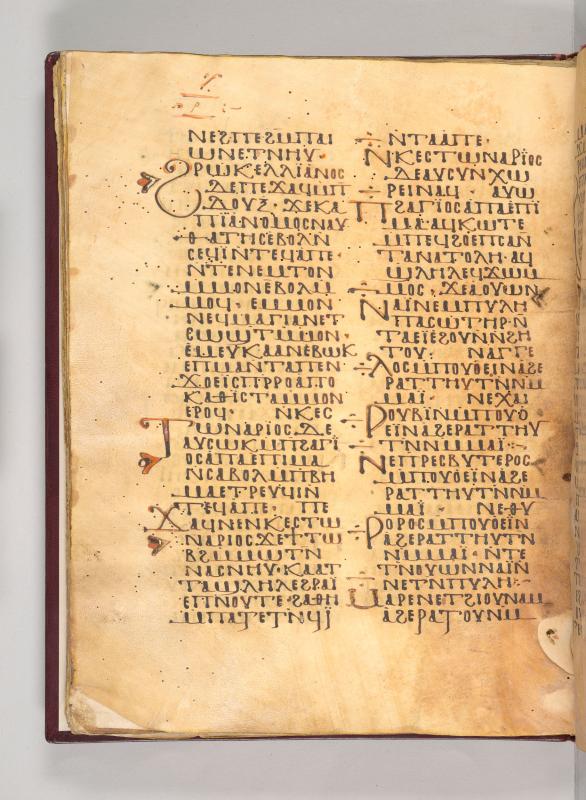 ⲛⲉϩⲡⲉϩⲙⲡⲁⲓ
ⲱⲛⲉⲧⲛⲏⲩ·
ϩⲣⲱⲕⲉⲗⲗⲓⲁⲛⲟⲥ
ⲇⲉⲡⲉϫⲁϥⲙⲡ
ⲇⲟⲩⲝ· ϫⲉⲕⲁ
ⲡⲓⲁⲛⲟⲙⲟⲥⲛⲁⲩ
ⲑⲁⲧⲏⲥⲉⲃⲟⲗⲛ̄
ⲥⲉϥⲓⲛ̄ⲧⲉϥⲁⲡⲉ·
ⲛ̄ⲧⲉⲛⲉⲙⲧⲟⲛ
ⲙ̄ⲙⲟⲛⲉⲃⲟⲗⲙ̄
ⲙⲟϥ· ⲉⲙⲙⲟⲛ
ⲛⲉϥⲙⲁⲅⲓⲁⲛⲉⲧ
ⲉⲱⲱⲧⲙⲙⲟⲛ·
ⲉⲙⲉⲩⲕⲁⲁⲛⲉⲃⲱⲕ
ⲉⲡⲙⲁⲛⲧⲁⲡⲉⲛ
ϫⲟⲉⲓⲥⲡⲣ̄ⲣⲟⲁⲡⲟ
ⲕⲁⲑⲓⲥⲧⲁⲙⲙⲟⲛ
ⲉⲣⲟϥ· ⲛ̄ⲕⲉⲥ
ⲧⲱⲛⲁⲣⲓⲟⲥⲇⲉ
ⲁⲩⲥⲱⲕⲙ̄ⲡϩⲁⲅⲓ
ⲟⲥⲁⲡⲁⲉⲡⲓⲙⲁ
ⲛ̄ⲥⲁⲃⲟⲗⲙ̄ⲡⲃⲏ
ⲙⲁⲉⲧⲣⲉⲩϥⲓⲛ̄
ⲧⲉϥⲁⲡⲉ· ⲡⲉ
ϫⲁϥⲛⲉⲛⲕⲉⲥⲧⲱ
ⲛⲁⲣⲓⲟⲥϫⲉϯⲧⲱ
ⲃϩⲙ̄ⲙⲱⲧⲛ̄
ⲛⲁⲥⲛⲏⲩ·ⲕⲁⲁⲧ
ⲧⲁϣⲗⲏⲗⲉϩⲣⲁⲓ̈
ⲉⲡⲛⲟⲩⲧⲉ·ϩⲁⲑⲏ
ⲙⲡⲁⲧⲉⲧⲛ̄ϥⲓ̈
ⲛ̄ⲧⲁⲁⲡⲉ·
ⲛ̄ⲕⲉⲥⲧⲱⲛⲁⲣⲓ̈ⲟⲥ
ⲇⲉⲁⲩⲥⲩⲛⲭⲱ
ⲣⲉⲓⲛⲁϥ· ⲁⲩⲱ
ⲡϩⲁⲅⲓⲟⲥⲁⲡⲁⲉⲡⲓ
ⲙⲁ·ⲁϥⲕⲱⲧⲉ
ⲙ̄ⲡⲉϥϩⲟⲉⲡⲥⲁⲛ
ⲧⲁⲛⲁⲧⲟⲗⲏ·ⲁϥ
ϣⲗⲏⲗⲉϥϫⲱⲙ̄
ⲙⲟⲥ· ϫⲉⲁⲟⲩⲱⲛ
ⲛⲁⲓ̈ⲛⲉⲙⲡⲩⲗⲏ
ⲡⲁⲥⲱⲧⲏⲣ·ⲛ̄
ⲧⲁⲉⲓ̈ⲉϩⲟⲩⲛⲛ̄ϩⲏ
ⲧⲟⲩ· ⲛⲁⲅⲅⲉ
ⲗⲟⲥⲙ̄ⲡⲟⲩⲟⲉⲓⲛⲁϩⲉ
ⲣⲁⲧⲧⲏⲩⲧⲛ̄ⲛⲙ̄
ⲙⲁⲓ̈· ⲛⲉⲭⲁⲓ
ⲣⲟⲩⲃⲓⲛⲙ̄ⲡⲟⲩⲟ̄
ⲉⲓⲛⲁϩⲉⲣⲁⲧⲧⲏⲩ
ⲧⲛ̄ⲛⲙ̄ⲙⲁⲓ̈·
ⲛⲉⲡⲣⲉⲥⲃⲩⲧⲉⲣⲟⲥ
ⲙ̄ⲡⲟⲩⲟⲉⲓⲛⲁϩⲉ
ⲣⲁⲧⲧⲏⲩⲧⲛ̄ⲛⲙ̄
ⲙⲁⲓ̈· ⲛⲉⲑⲩ
ⲣⲟⲣⲟⲥⲙ̄ⲡⲟⲩⲟⲉⲓ̈ⲛ
ⲁϩⲉⲣⲁⲧⲧⲏⲩⲧⲛ̄
ⲛⲙ̄ⲙⲁⲓ̈·ⲛ̄ⲧⲉ
ⲧⲛⲟⲩⲱⲛⲛⲁⲓ̈
ⲛ̄ⲛⲉⲧⲛ̄ⲡⲩⲗⲏ·
ⲙⲁⲣⲉⲛⲉⲧϩⲓⲟⲩⲛⲁⲙ
ⲁϩⲉⲣⲁⲧⲟⲩⲛⲙ̄